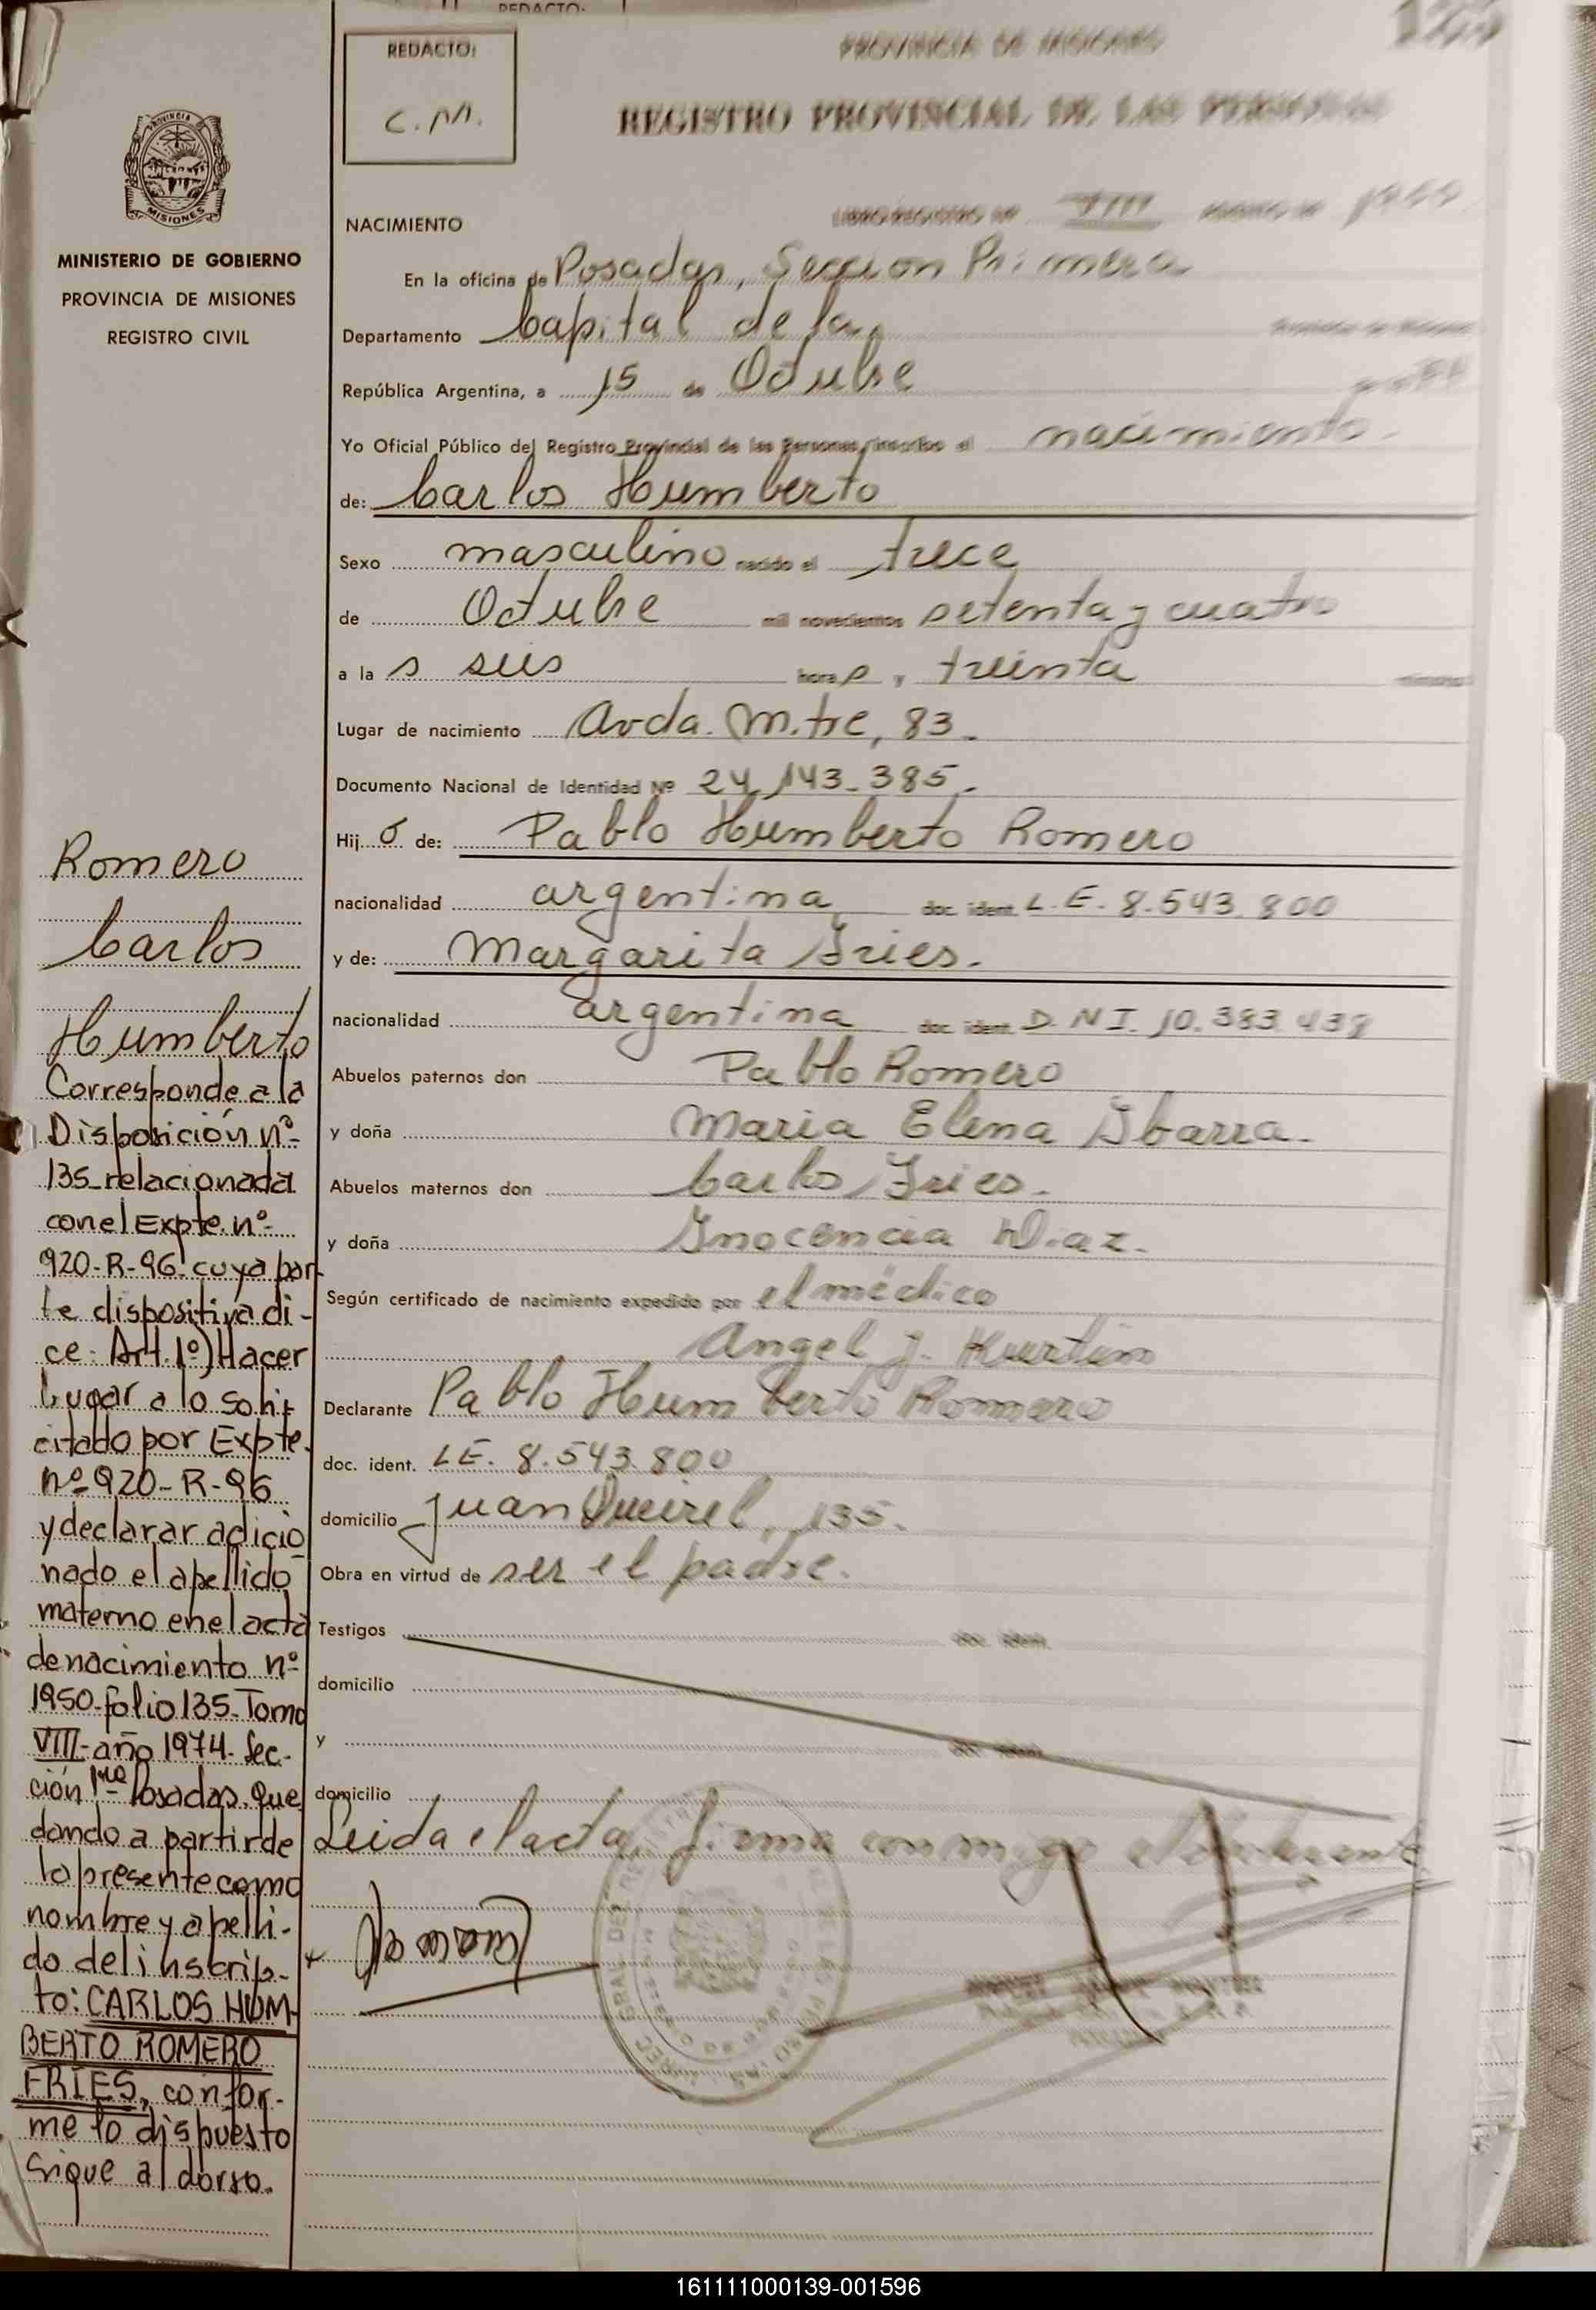 REDACTO:
REDACTO:
C.M.
PROVINCIA DE MISIONES
REGISTRO PROVINCIAL DE LAS PERSONAS
PROVINCIA
MISIONES
MINISTERIO DE GOBIERNO
PROVINCIA DE MISIONES
REGISTRO CIVIL
NACIMIENTO
LIBRO REGISTRO Nº VIII
En la oficina de Posadas, Sección Primera
Departamento Capital de la Provincia de Misiones
República Argentina, a 15 de Octubre
Yo Oficial Público del Registro Provincial de las Personas, inscribo el nacimiento.
de: Carlos Humberto
Sexo masculino nacido el trece
de Octubre mil novecientos setenta y cuatro
a la s seis hora s y treinta minutos
Lugar de nacimiento Avda. Mitre, 83.
Documento Nacional de Identidad Nº 24.143.385.
Hij o de: Pablo Humberto Romero
nacionalidad argentina doc. ident. L.E. 8.543.800
y de: Margarita Fries.
nacionalidad argentina doc. ident. D.N.I. 10.383.438
Abuelos paternos don Pablo Romero
y doña Maria Elena Ibarra.
Abuelos maternos don Carlos Fries.
y doña Inocencia Diaz.
Según certificado de nacimiento expedido por el médico
Angel J.
Declarante Pablo Humberto Romero
doc. ident. L.E. 8.543.800
domicilio Juan Queirel, 135.
Obra en virtud de ser el padre.
Testigos doc. ident.
domicilio
y doc. ident.
domicilio
Leida el acta, firma conmigo el declarante
Romero
Carlos
Humberto
Corresponde a la
Disposición nº
135 relacionada
con el Expte. nº
920-R-96. cuya par-
te dispositiva di-
ce: Art. 1º) Hacer
lugar a lo soli-
citado por Expte.
nº 920-R-96
y declarar adicio
nado el apellido
materno en el acta
de nacimiento nº
1950-folio 135-Tomo
VIII-año 1974. Sec-
ción 1ra Posadas. Que
dando a partir de
la presente como
nombre y apelli-
do del inscrip-
to: CARLOS HUM-
BERTO ROMERO
FRIES, confor-
me lo dispuesto
Sigue al dorso.
161111000139-001596